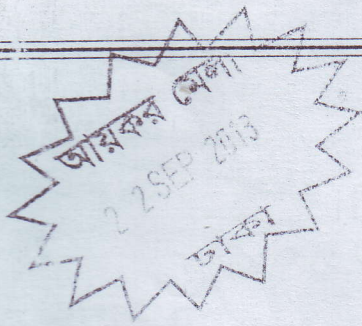 আয়কর মেলা
22 SEP 2013
ঢাকা